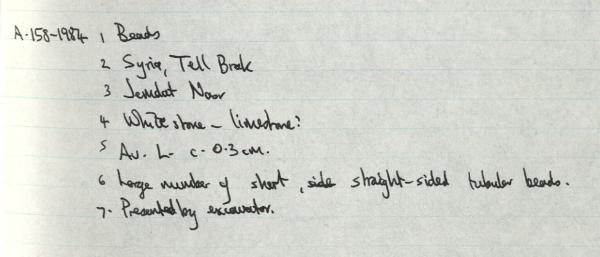 A.158-1984 1 Beads
2 Syria, Tell Brak
3 Jemdat Nasr
4 White stone - limestone?
5 Av. L. c. 0.3 cm.
6 Large number of short, side straight-sided tubular beads.
7. Presented by excavator.